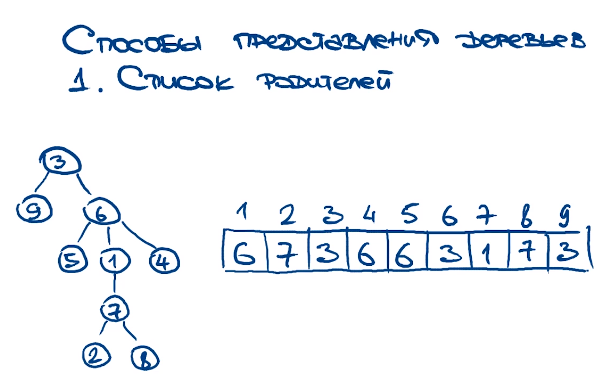 Способы представления деревьев
1. Список родителей
3
9 6
5 1 4
7
2 8
1 2 3 4 5 6 7 8 9
6 7 3 6 6 3 1 7 3